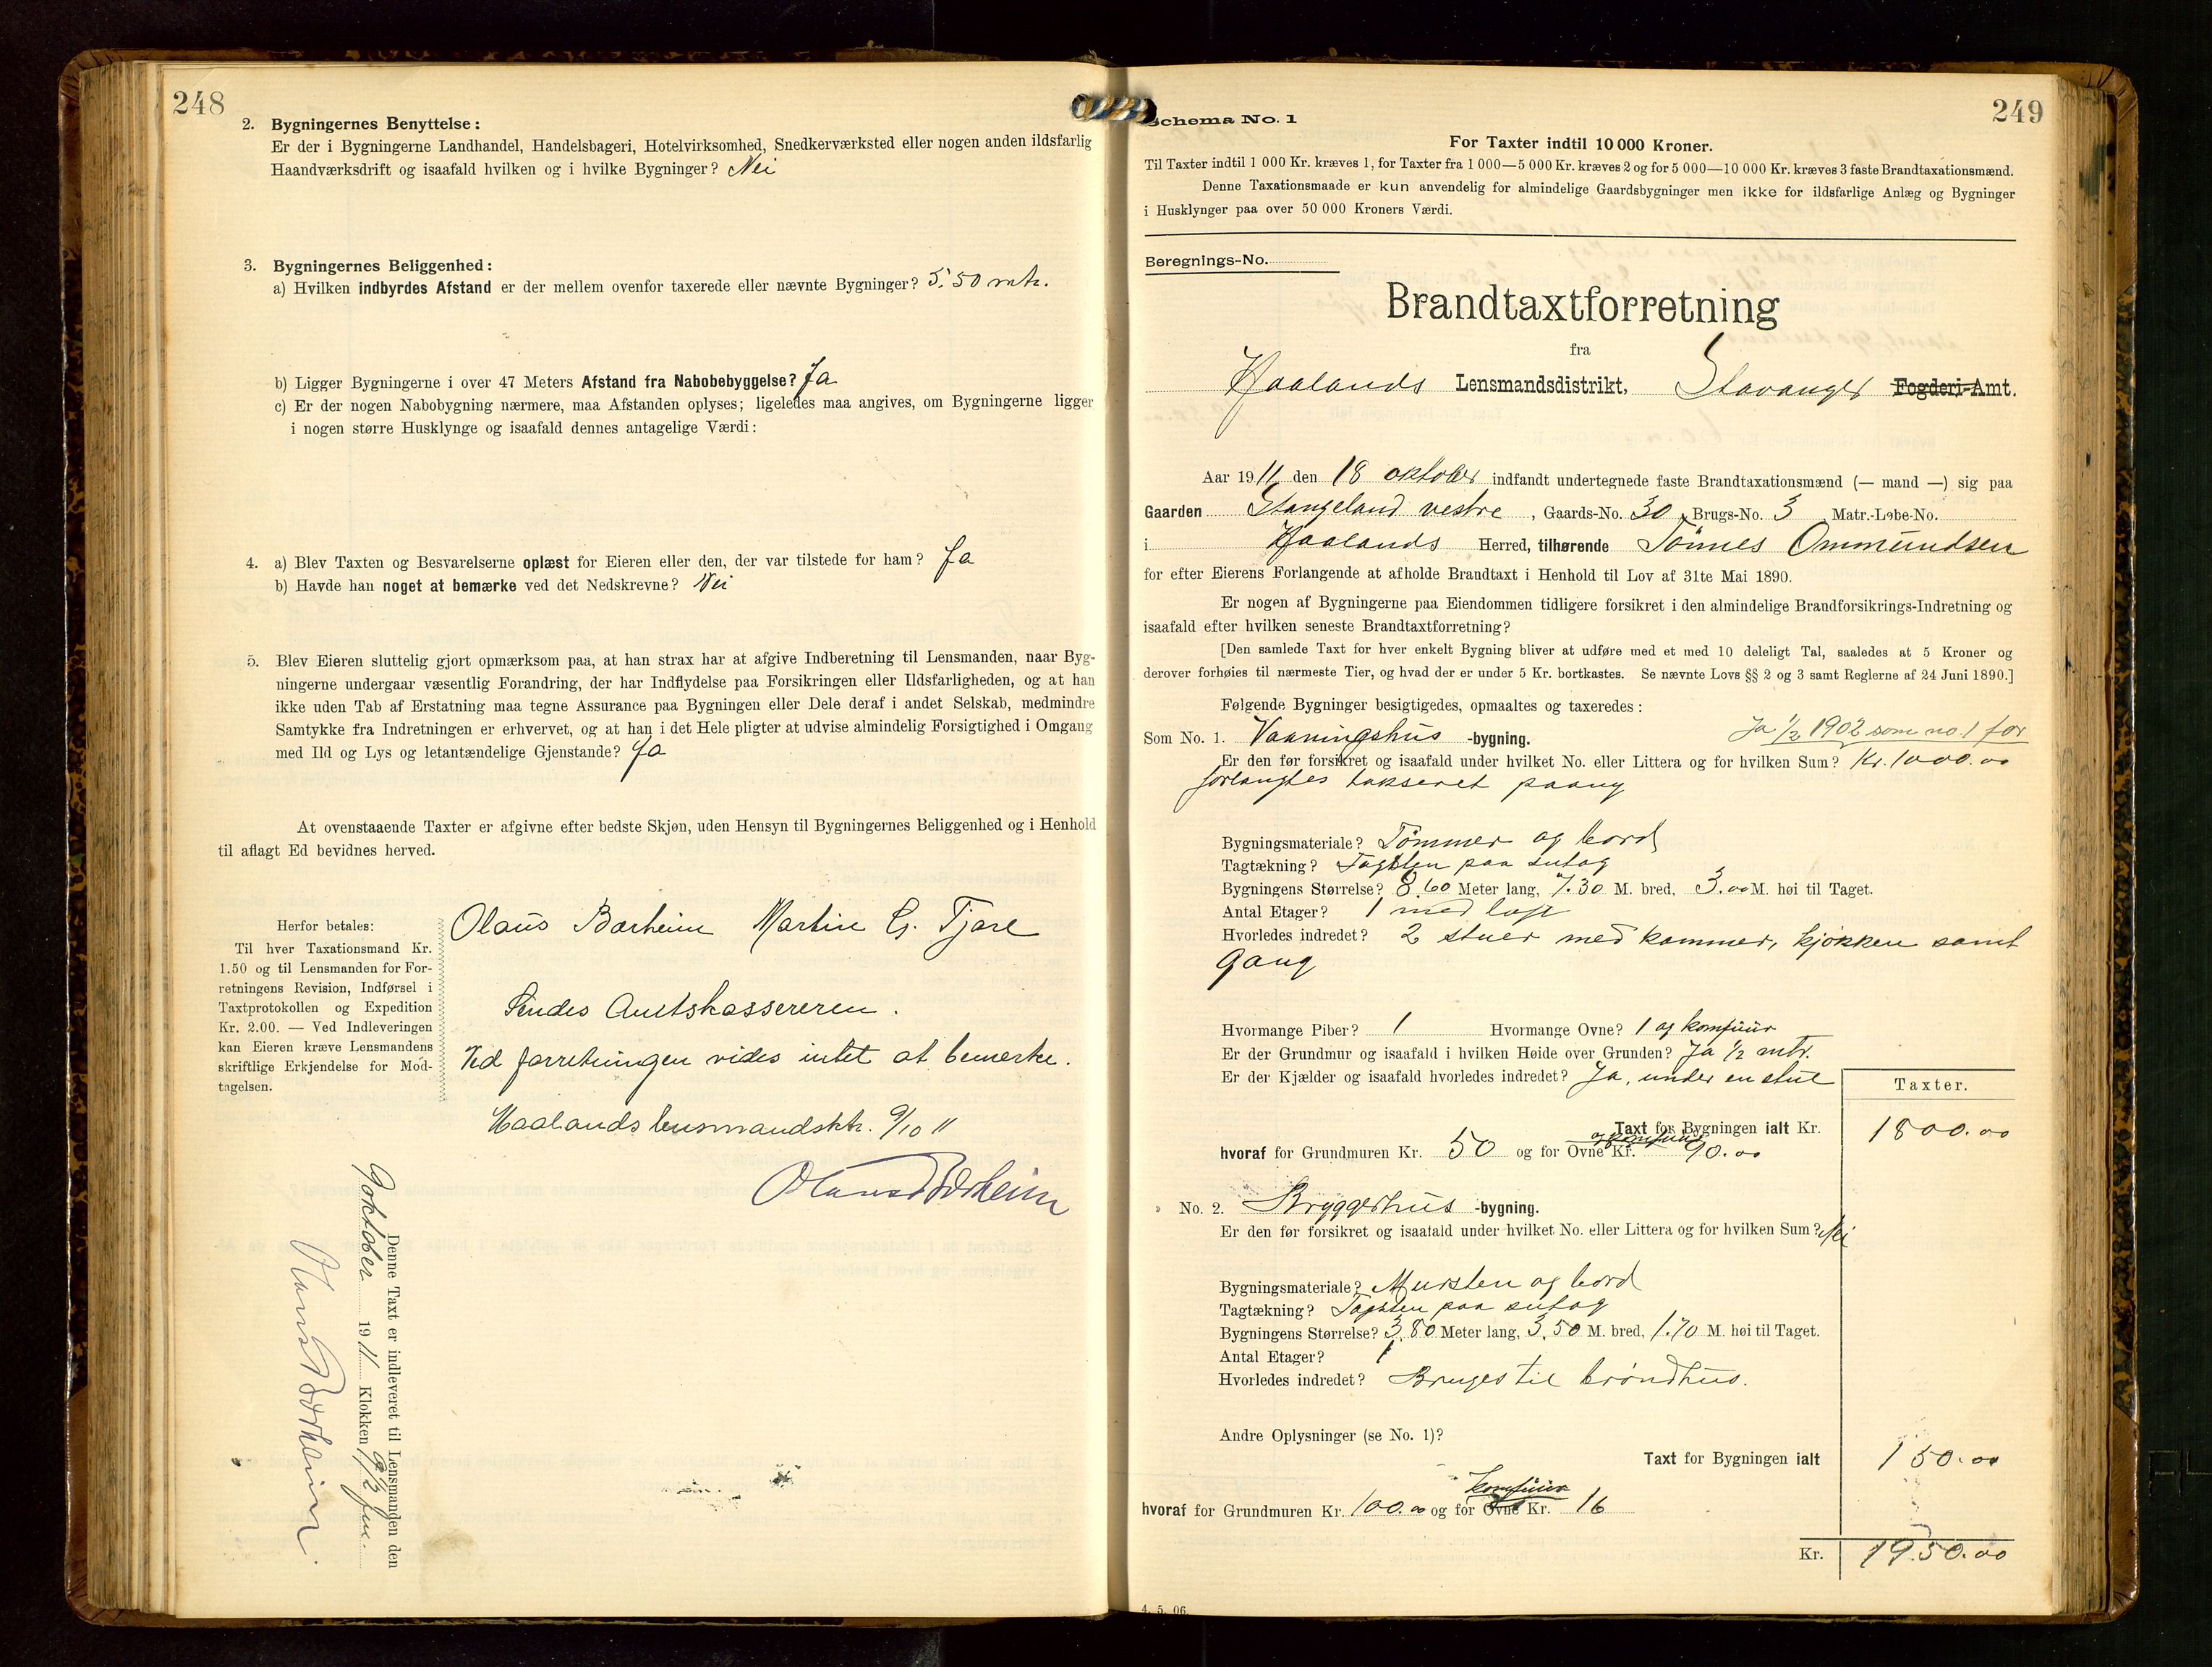 248
2. Bygningernes Benyttelse:
Er der i Bygningerne Landhandel, Handelsbageri, Hotelvirksomhed, Snedkerværksted eller nogen anden ildsfarlig
Haandværksdrift og isaafald hvilken og i hvilke Bygninger? Nei
3. Bygningernes Beliggenhed:
a) Hvilken indbyrdes Afstand er der mellem ovenfor taxerede eller nævnte Bygninger? 5,50 mtr.
b) Ligger Bygningerne i over 47 Meters Afstand fra Nabobebyggelse? Ja
c) Er der nogen Nabobygning nærmere, maa Afstanden oplyses; ligeledes maa angives, om Bygningerne ligger
i nogen større Husklynge og isaafald dennes antagelige Værdi:
4. a) Blev Taxten og Besvarelserne oplæst for Eieren eller den, der var tilstede for ham? Ja
b) Havde han noget at bemærke ved det Nedskrevne? Nei
5. Blev Eieren sluttelig gjort opmærksom paa, at han strax har at afgive Indberetning til Lensmanden, naar Byg-
ningerne undergaar væsentlig Forandring, der har Indflydelse paa Forsikringen eller Ildsfarligheden, og at han
ikke uden Tab af Erstatning maa tegne Assurance paa Bygningen eller Dele deraf i andet Selskab, medmindre
Samtykke fra Indretningen er erhvervet, og at han i det Hele pligter at udvise almindelig Forsigtighed i Omgang
med Ild og Lys og letantændelige Gjenstande? Ja
At ovenstaaende Taxter er afgivne efter bedste Skjøn, uden Hensyn til Bygningernes Beliggenhed og i Henhold
til aflagt Ed bevidnes herved.
Herfor betales:
Til hver Taxationsmand Kr.
1.50 og til Lensmanden for For-
retningens Revision, Indførsel i
Taxtprotokollen og Expedition
Kr. 2.00. — Ved Indleveringen
kan Eieren kræve Lensmandens
skriftlige Erkjendelse for Mod-
tagelsen.
Olaus Børheim Martin G. Tjøre
Sendes Amtskassereren.
Ved forretningen vides intet at bemerke.
Haalands lensmandsktr. 9/10 11
Olaus Børheim
Denne Taxt er indleveret til Lensmanden den
9 oktober 1911 Klokken 9 1/2 fm.
Olaus Børheim.
249
Schema No. 1
For Taxter indtil 10 000 Kroner.
Til Taxter indtil 1 000 Kr. kræves 1, for Taxter fra 1 000—5 000 Kr. kræves 2 og for 5 000—10 000 Kr. kræves 3 faste Brandtaxationsmænd.
Denne Taxationsmaade er kun anvendelig for almindelige Gaardsbygninger men ikke for ildsfarlige Anlæg og Bygninger
i Husklynger paa over 50 000 Kroners Værdi.
Beregnings-No.
Brandtaxtforretning
fra
Haalands Lensmandsdistrikt, Stavanger Fogderi-Amt.
Aar 1911 den 18 oktober indfandt undertegnede faste Brandtaxationsmænd (— mand —) sig paa
Gaarden Stangeland vestre, Gaards-No. 30, Brugs-No. 3 Matr.-Løbe-No.
i Haalands Herred, tilhørende Tønnes Ommundsen
for efter Eierens Forlangende at afholde Brandtaxt i Henhold til Lov af 31te Mai 1890.
Er nogen af Bygningerne paa Eiendommen tidligere forsikret i den almindelige Brandforsikrings-Indretning og
isaafald efter hvilken seneste Brandtaxtforretning?
[Den samlede Taxt for hver enkelt Bygning bliver at udføre med et med 10 deleligt Tal, saaledes at 5 Kroner og
derover forhøies til nærmeste Tier, og hvad der er under 5 Kr. bortkastes. Se nævnte Lovs §§ 2 og 3 samt Reglerne af 24 Juni 1890.]
Følgende Bygninger besigtigedes, opmaaltes og taxeredes:
Som No. 1. Vaaningshus -bygning. Ja 1/2 1902 som no. 1 for
Er den før forsikret og isaafald under hvilket No. eller Littera og for hvilken Sum? Kr. 1000.00
forlangtes takseret paany
Bygningsmateriale? Tømmer og bord
Tagtækning? Tagsten paa sutag
Bygningens Størrelse? 8.60 Meter lang, 7.30 M. bred, 3.00 M. høi til Taget.
Antal Etager? 1 med loft
Hvorledes indredet? 2 stuer med kammer, kjøkken samt
gang
Hvormange Piber? 1 Hvormange Ovne? 1 og komfuur
Er der Grundmur og isaafald i hvilken Høide over Grunden? Ja 1/2 mtr.
Er der Kjælder og isaafald hvorledes indredet? Ja, under en stue
Taxter.
Taxt for Bygningen ialt Kr. 1800.00
og komfuur
hvoraf for Grundmuren Kr. 50 og for Ovne Kr. 90.00
No. 2. Bryggerhus -bygning.
Er den før forsikret og isaafald under hvilket No. eller Littera og for hvilken Sum? Nei
Bygningsmateriale? Mursten og bord
Tagtækning? Tagsten paa sutag
Bygningens Størrelse? 3,80 Meter lang, 3,50 M. bred, 1.70 M. høi til Taget.
Antal Etager? 1
Hvorledes indredet? Bruges til brøndhus.
Andre Oplysninger (se No. 1)?
Taxt for Bygningen ialt 150.00
komfuur
hvoraf for Grundmuren Kr. 100.00 og for Ovne Kr. 16
Kr. 1950.00
4. 5. 06.